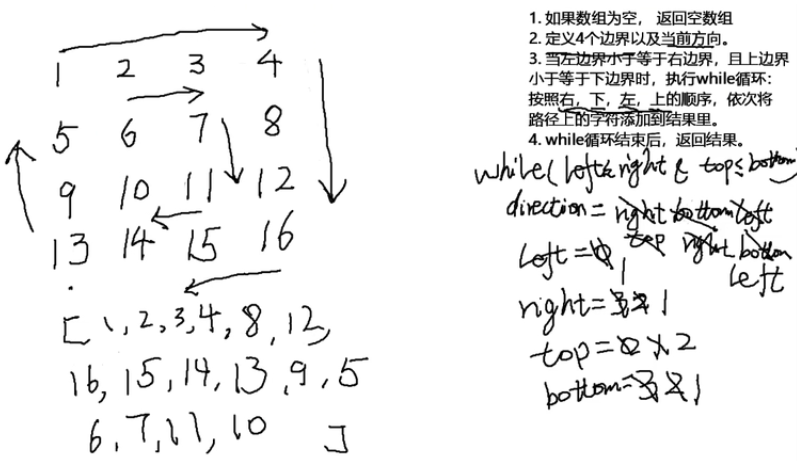 1 2 3 4
5 6 7 8
9 10 11 12
13 14 15 16
[ 1, 2, 3, 4, 8, 12,
16, 15, 14, 13, 9, 5
6, 7, 11, 10 ]
1. 如果数组为空， 返回空数组
2. 定义4个边界以及当前方向。
3. 当左边界小于等于右边界，且上边界
小于等于下边界时，执行while循环：
按照右，下，左，上的顺序，依次将
路径上的字符添加到结果里。
4. while循环结束后，返回结果。
while( left≤right & top≤bottom)
direction = right bottom left
top right bottom
left
left = 0 1
right = 3 2 1
top = 0 1 2
bottom = 3 2 1